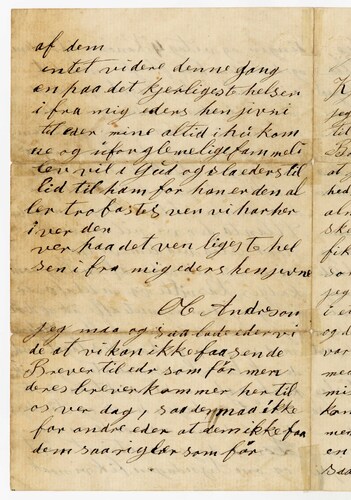 af dem
intet videre denne gang
en paa det kjerligeste helsen
i fra mig eders hen jivni
til eder mine altid i hu kom
ne og uforglemelige fammeli
lev vil i Gud og slaa eders til
lid til ham for han er den al
ler trofastes ven vi har her
i verden
ver paa det ven ligeste hel
sen i fra mig eders hen jevne
Ol Andreson
jeg maa og saa lade eder vi
de at vi kan ikke faa sende
Brever til edr som før men
deres brever kommer her til
os ver dag, saa de maa ikke
for andre eder at dem ikke faa
dem saa rigler som før